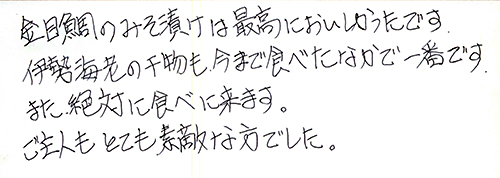 金目鯛のみそ漬けは最高においしかったです.
伊勢海老の干物も、今まで食べたなかで一番です.
また、絶対に食べに来ます。
ご主人もとても素敵な方でした。